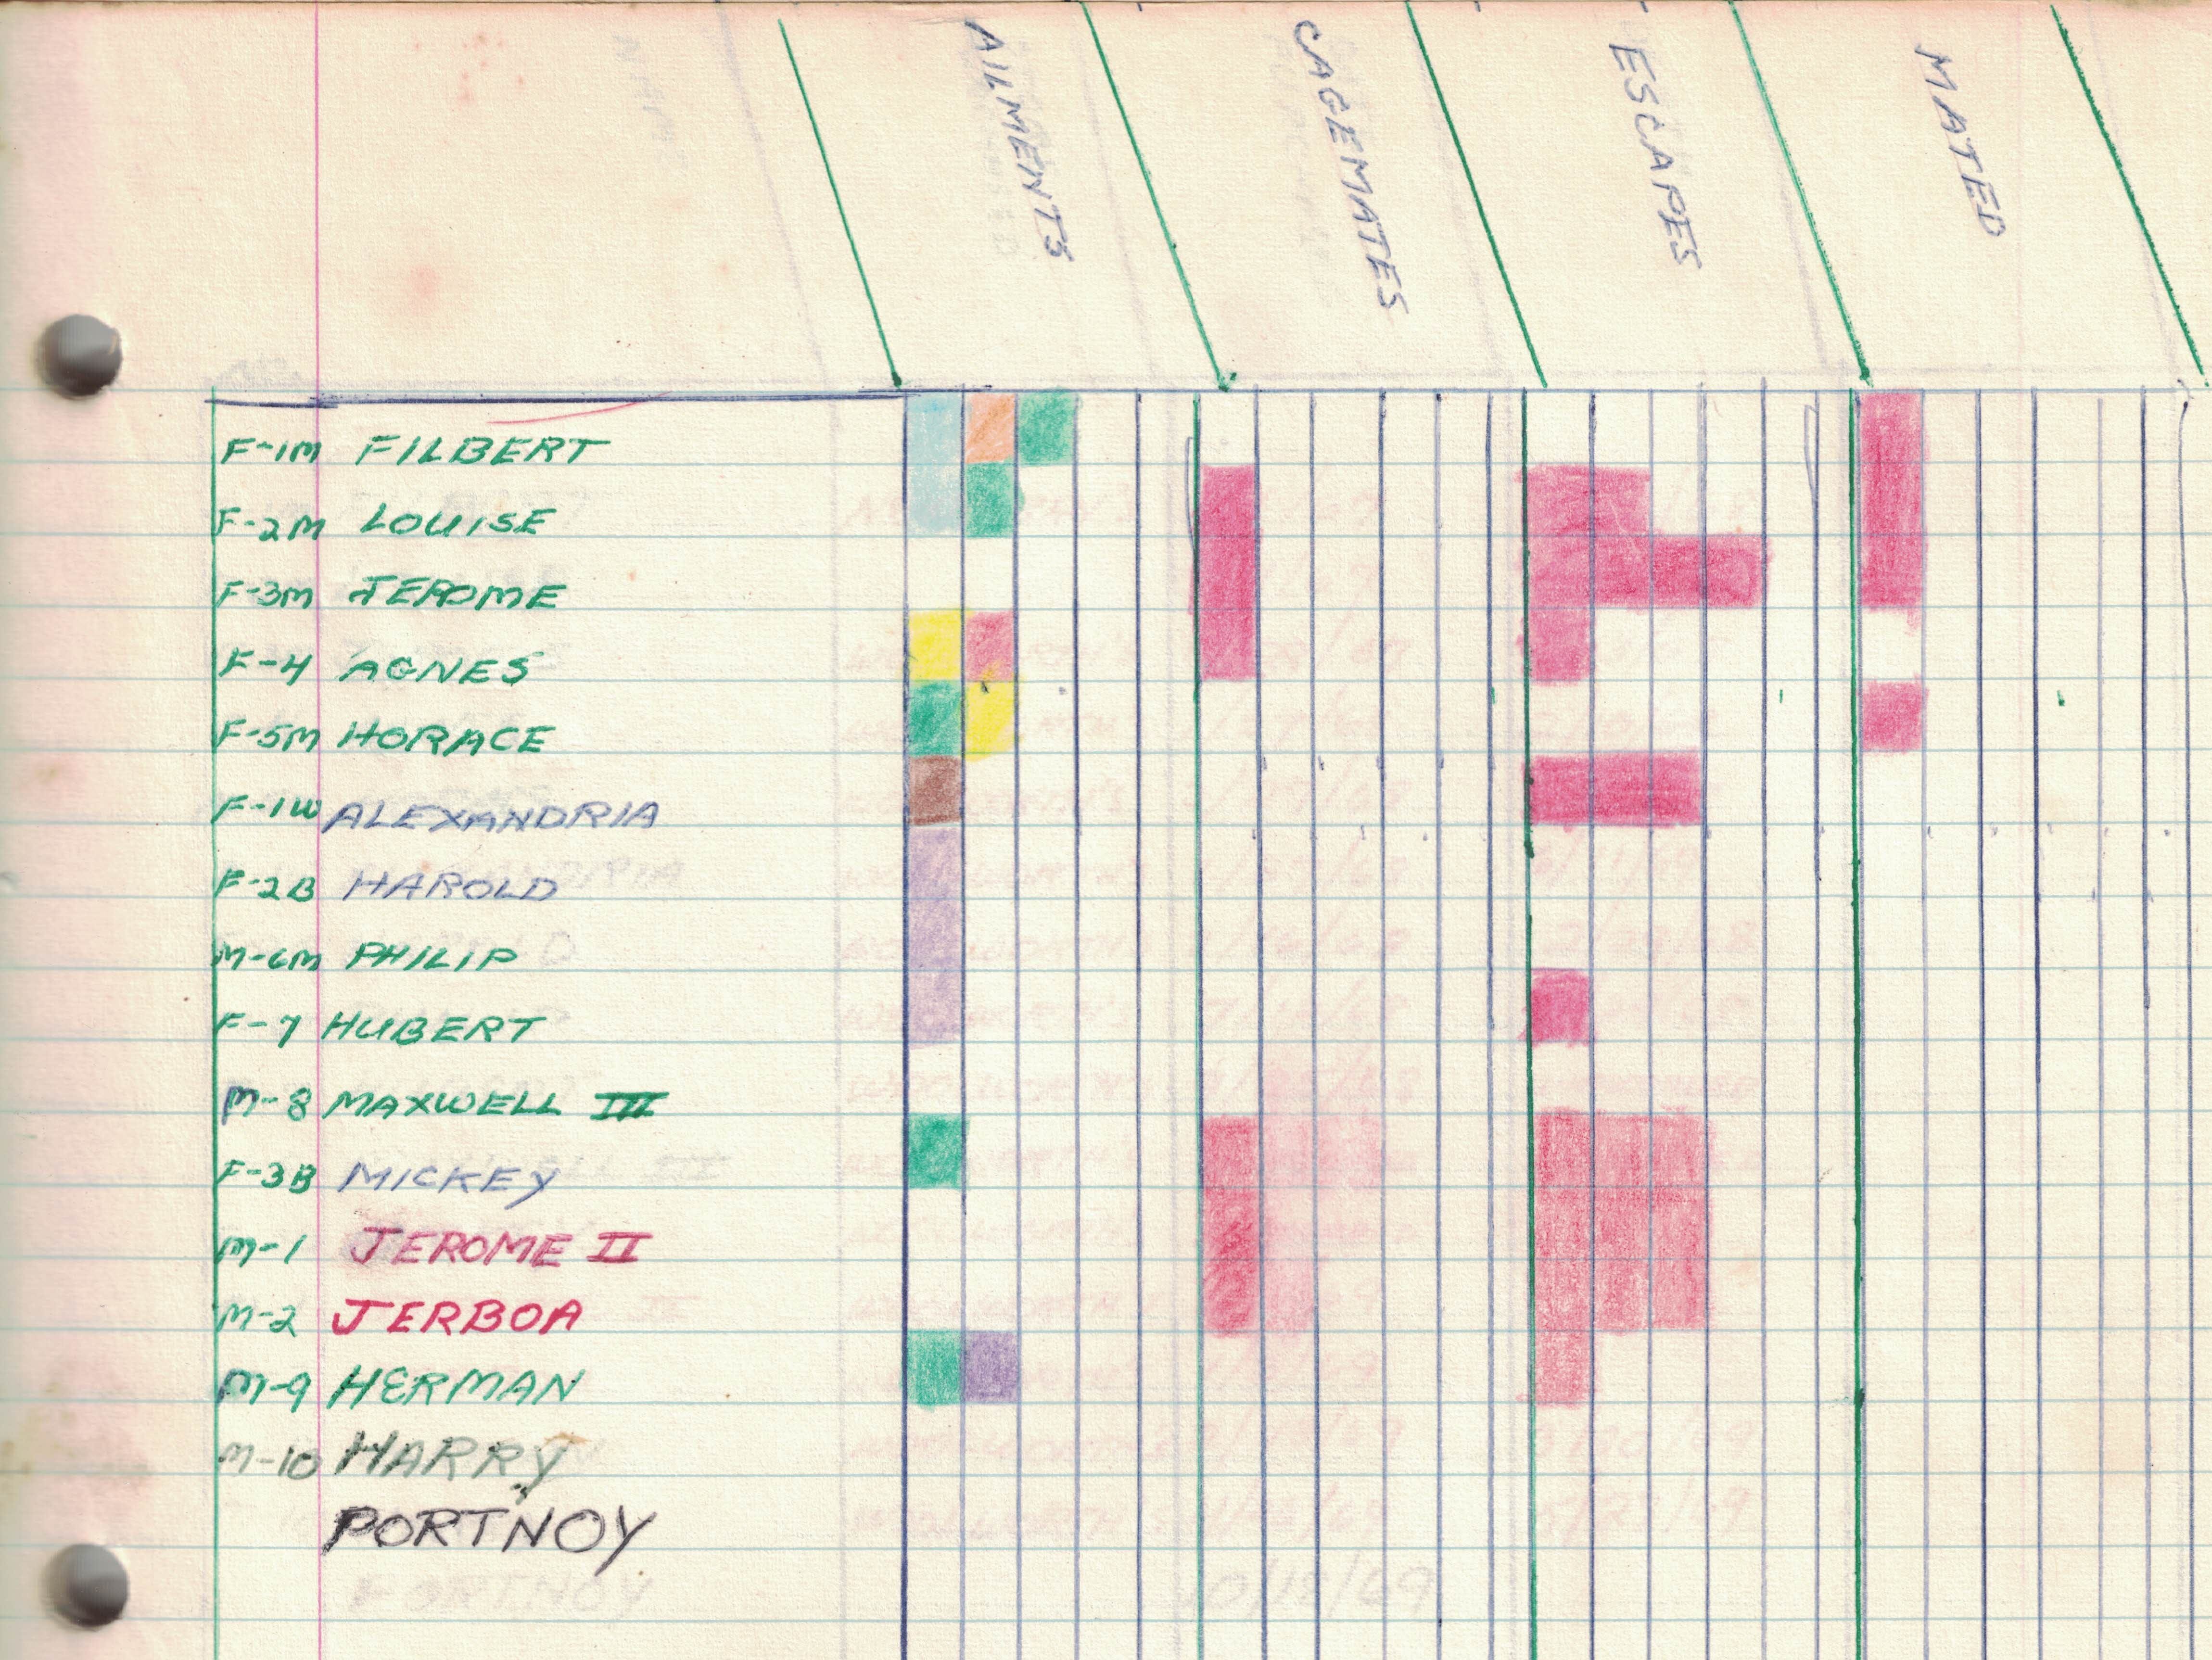 AILMENTS
CAGEMATES
ESCAPES
MATED
F-1M FILBERT
F-2M LOUISE
F-3M JEROME
F-4 AGNES
F-5M HORACE
F-1W ALEXANDRIA
F-2B HAROLD
M-6M PHILIP
F-7 HUBERT
M-8 MAXWELL III
F-3B MICKEY
M-1 JEROME II
M-2 JERBOA
M-9 HERMAN
M-10 HARRY
PORTNOY